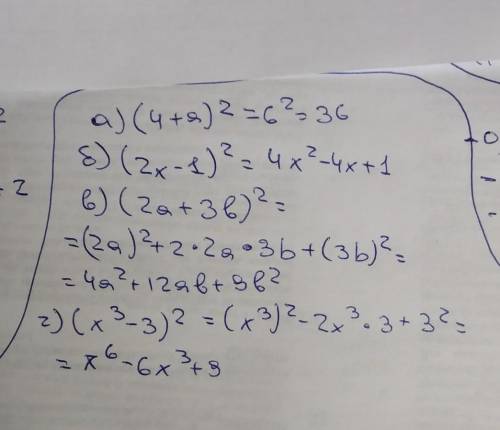 а) (4+a)² = 6² = 36
б) (2x-1)² = 4x²-4x+1
в) (2a+3b)² =
=(2a)²+2·2a·3b+(3b)²=
=4a²+12ab+9b²
г) (x³-3)² = (x³)²-2x³·3+3²=
=x⁶-6x³+9